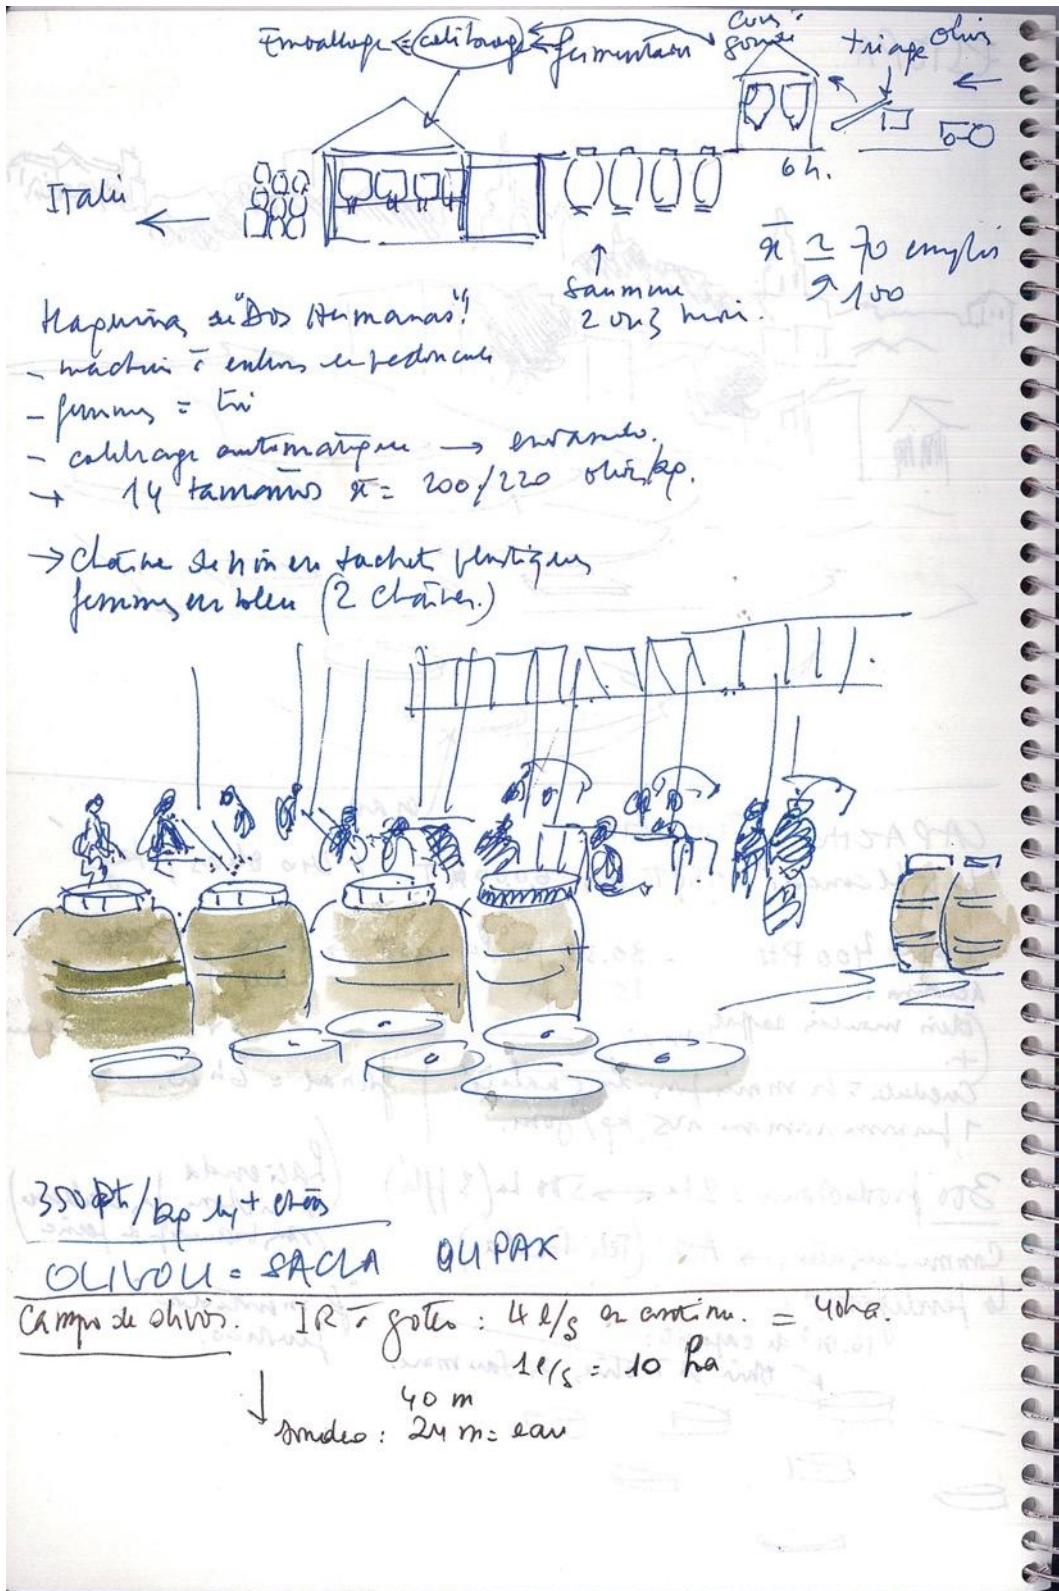 Emballage ⇐ calibrage ⇐ fermentation
soude
triage
Olives
6 h.
Italie
x̄ ≃ 70 emplois
↗ 100
↑
Saumure
2 ou 3 mois.
Maquinas de "Dos Hermanas"!
- machine à enlever le pédoncule
- femmes = tri
- calibrage automatique → envasado.
→ 14 tamaños x̄ = 200/220 olives/kg.
→ Chaîne de mise en sachet plastiques
femmes en bleu (2 chaînes.)
350 Pt/kg
OLIVOLI = SACLA OLIPAK
Campo de olivos. IR à goteo : 4 l/s en continu. = 40 ha.
1 l/s = 10 ha
40 m
↓ sondeo : 24 m = eau